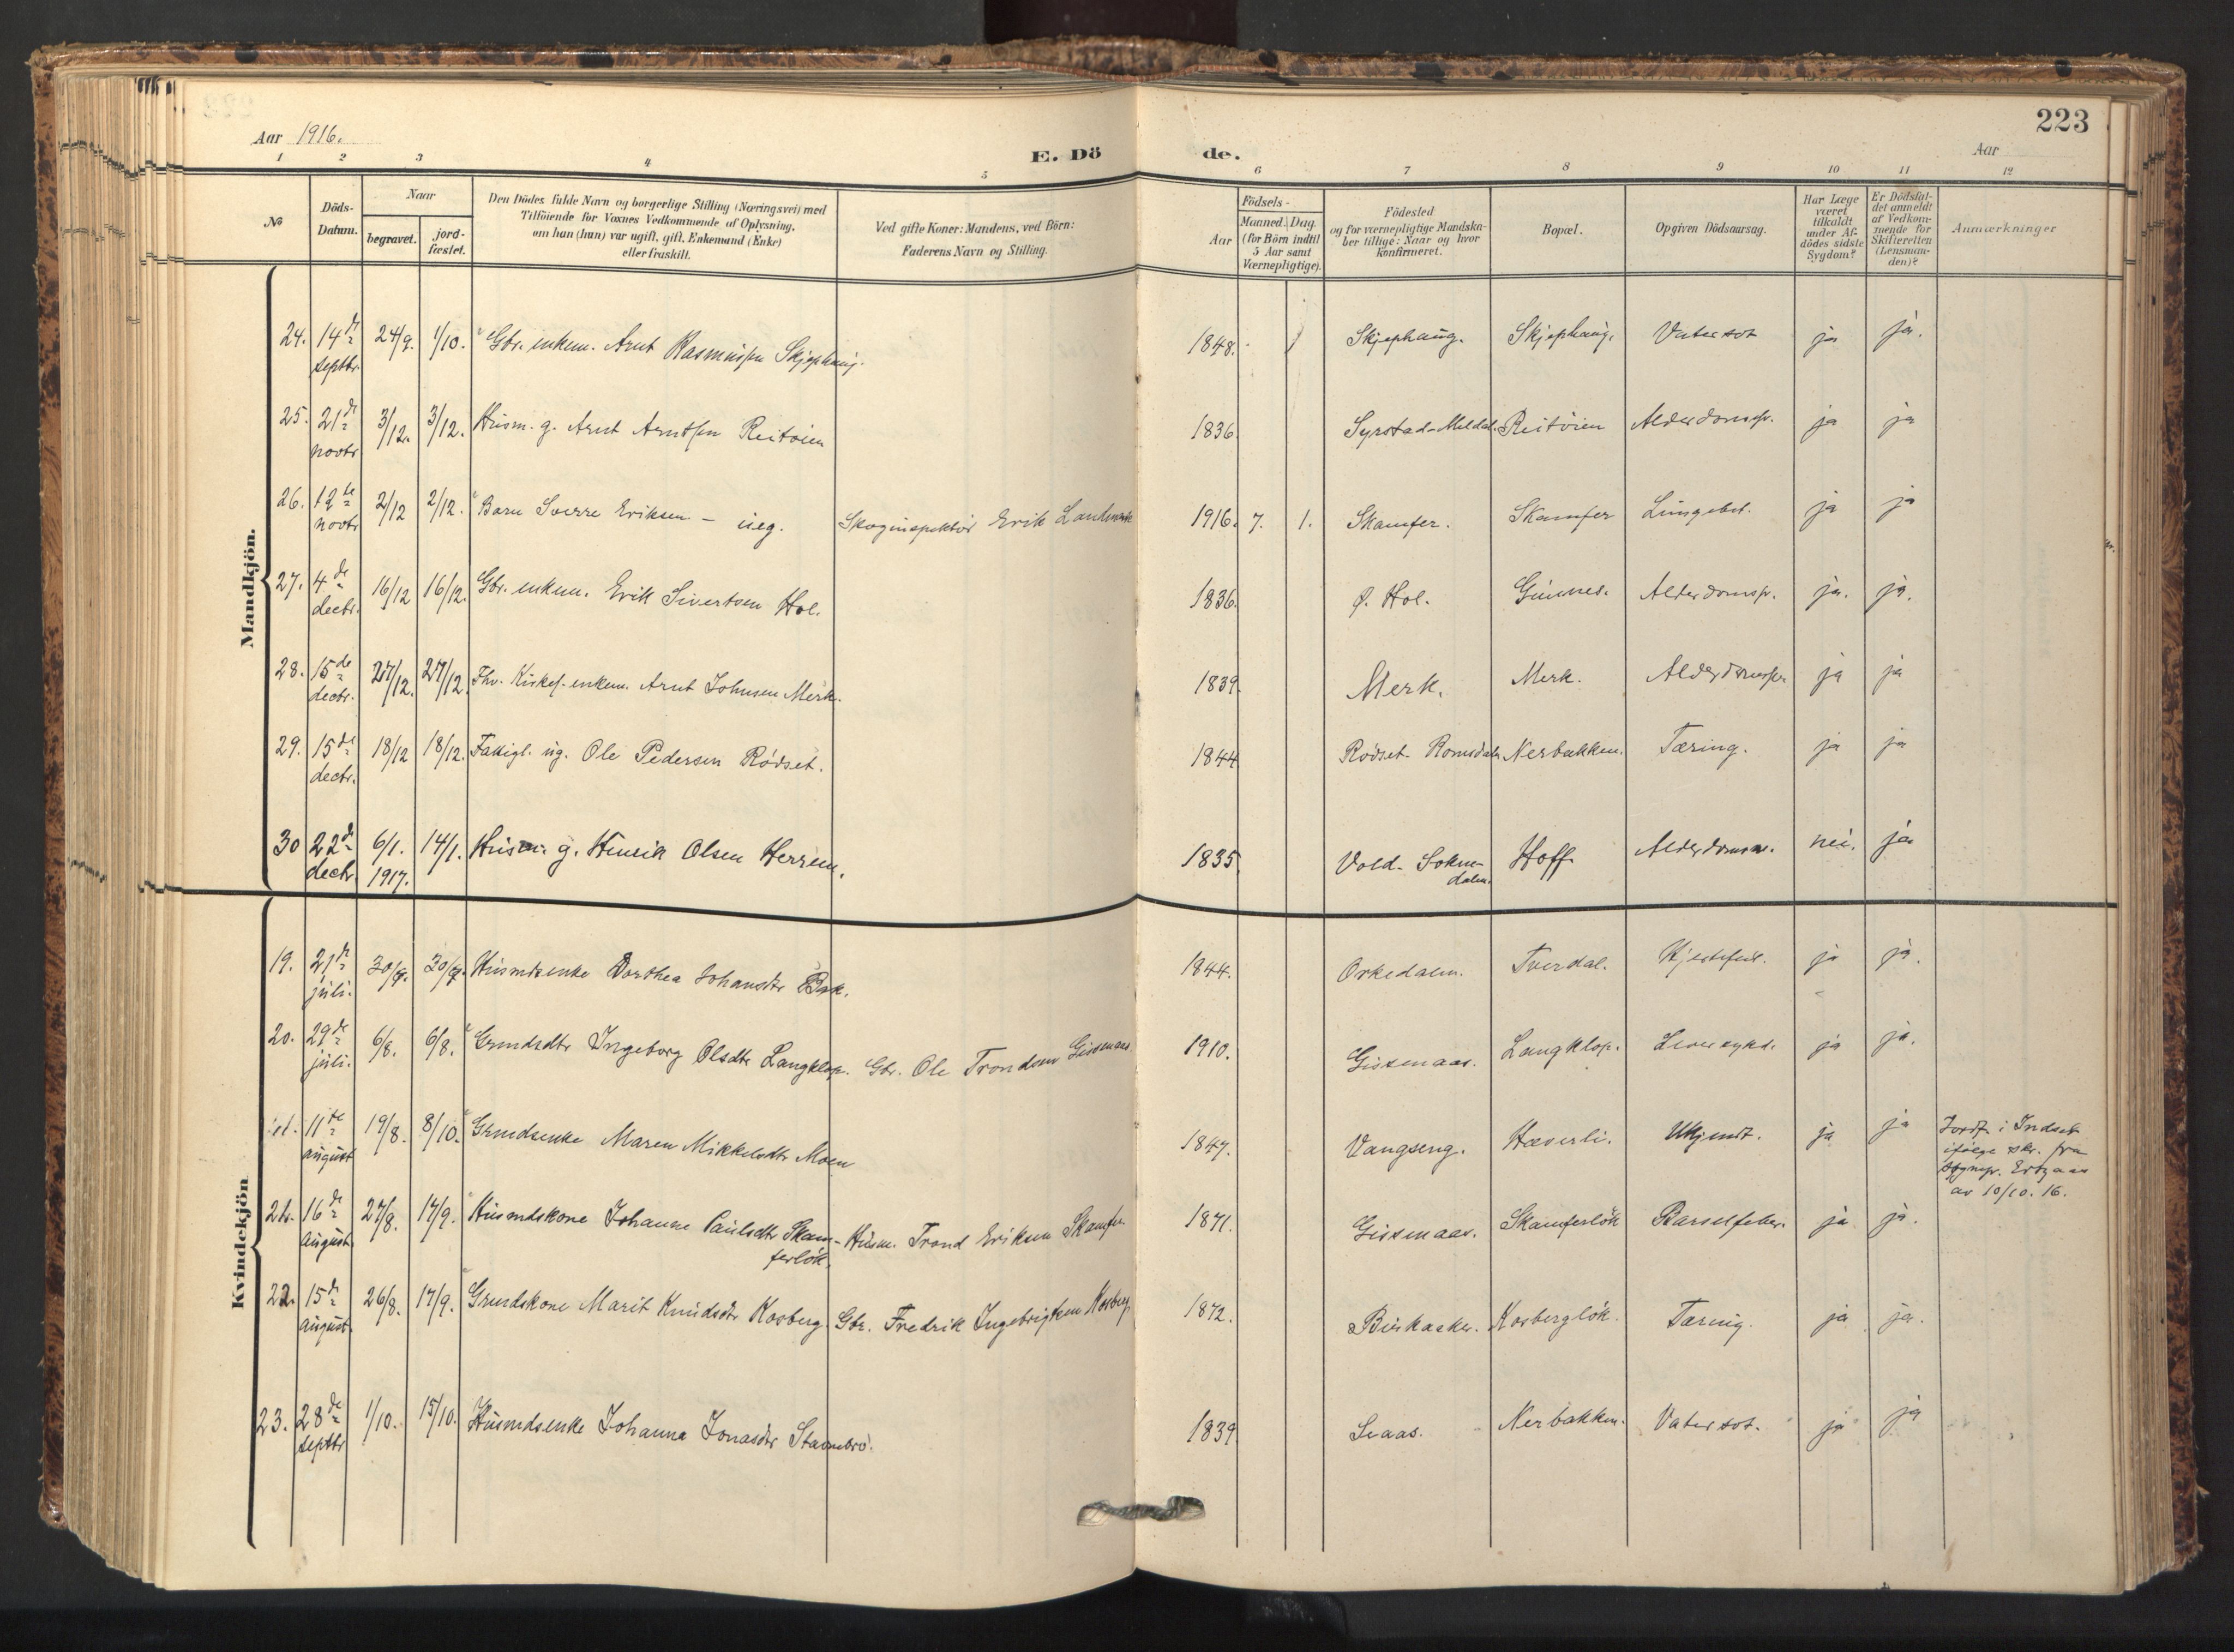 223
Aar 1916.
E. Dö de.
Aar
1 2 3 4 5 6 7 8 9 10 11 12
№
Döds-Datum.
Naar
begravet.
jord-fæstet.
Den Dödes fulde Navn og borgerlige Stilling (Næringsvei) med
Tilföiende for Voxnes Vedkommende af Oplysning,
om han (hun) var ugift, gift, Enkemand (Enke)
eller fraskilt.
Ved gifte Koner: Mandens, ved Börn:
Faderens Navn og Stilling.
Födsels-
Aar
Maaned. Dag.
(for Börn indtil
5 Aar samt
Værnepligtige).
Födested
og for værnepligtige Mandska-
ber tillige: Naar og hvor
Konfirmeret.
Bopæl.
Opgiven Dödsaarsag.
Har Læge
været
tilkaldt
under Af-
dödes sidste
Sygdom?
Er Dödsfal-
det anmeldt
af Vedkom-
mende for
Skifteretten
(Lensman-
den)?
Anmærkninger
Mandkjön.
24. 14de septbr. 24/9. 1/10. Gbr. enkem. Arnt Rasmussen Skjephaug. 1848. Skjephaug. Skjephaug. Vatersot ja ja.
25. 21de novbr 3/12. 3/12. Husm. g. Arnt Arntsen Reitöien 1836. Syrstad-Meldal. Reitöien Alderdomsp. ja ja
26. 19te novbr 2/12 2/12. Barn Sverre Eriksen - ueg. Skoginspektör Erik 1916. 7. 1. Skamfer. Skamfer Lungebet. ja ja
27. 4de decbr. 16/12 16/12. Gbr. enkem. Erik Sivertsen Hol. 1836. Ø. Hol. Gunnes. Alderdomsp. ja. ja.
28. 15de decbr. 27/12. 27/12. Fhv. Kirkes. enkem. Arnt Johnsen Merk. 1839. Merk. Merk. Alderdomsp. ja ja
29. 15de decbr. 18/12 18/12. Fattigl. ug. Ole Pedersen Rødset. 1844 Rødset-Romsdalen Nerbakken. Tæring. ja ja
30 22de decbr. 6/1. 1917. 14/1. Husm. g. Henrik Olsen Herrem. 1835. Vold-Soknedalen. Hoff. Alderdomssv. nei. ja
Kvindekjön
19. 21de juli. 30/7. 30/7. Husmdsenke Dorthea Johansdtr Bak. 1844. Orkedalen. Tverdal. Hjertefeil. ja ja.
20. 29de juli. 6/8. 6/8. Grmdsdtr Ingeborg Olsdtr Langklop. Gbr. Ole Trondsen Gissenaas 1910. Gissenaas. Langklop. Leversykd. ja ja.
11te august 19/8. 8/10. Grmdsenke Maren Mikkelsdtr Moen 1847. Vangseng. Hæverli. Ukjendt. ja ja Jordf. i Indset
ifølge skr. fra
av 10/10. 16.
21. 16de august. 27/8. 17/9. Husmdskone Johanne Paulsdtr Skam-
ferlök. Husm. Trond Eriksen Skamfer 1871. Gissenaas. Skamferlök Barselfeber. ja ja.
22. 15de august. 26/8. 17/9. Grmdskone Marit Knudsdtr Kosberg. Gbr. Fredrik Ingebrigtsen Kosberg. 1872. Buskasker. Kosberglök. Tæring. ja ja.
23. 28de septbr 1/10. 15/10. Husmdsenke Johanna Jonasdtr Stavnebrö. 1839. Svaas. Nerbakken. Vatersot. ja ja